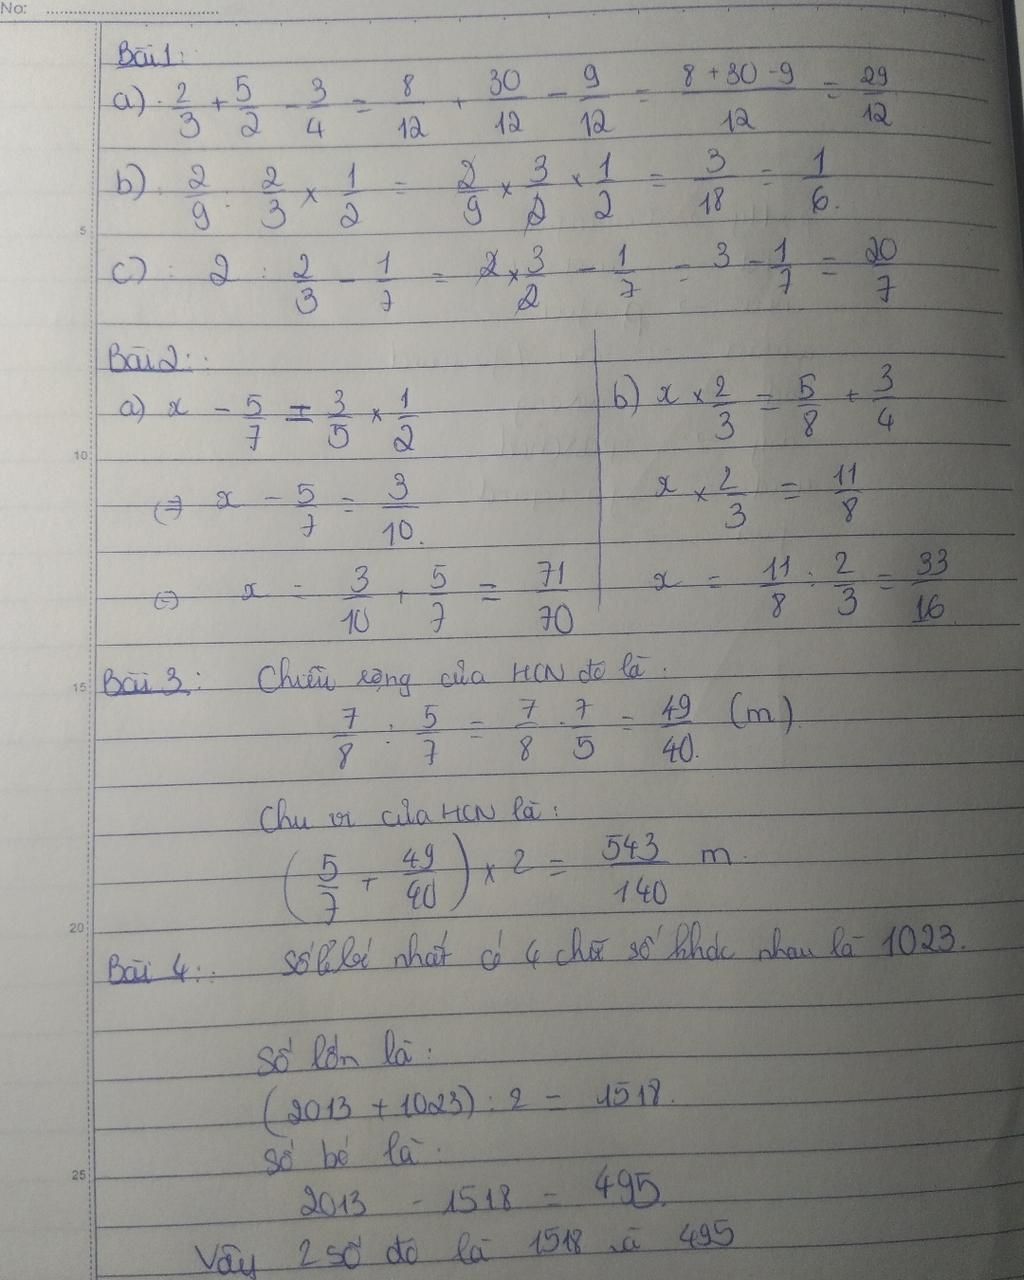 No: ..........................
Bài 1:
a) 2/3 + 5/2 - 3/4 = 8/12 + 30/12 - 9/12 = (8 + 30 - 9)/12 = 29/12
b) 2/9 : 2/3 × 1/2 = 2/9 × 3/2 × 1/2 = 3/18 = 1/6.
5
c) : 2 : 2/3 - 1/7 = 2 × 3/2 - 1/7 = 3 - 1/7 = 20/7
Bài 2:
a) x - 5/7 = 3/5 × 1/2
10
(=) x - 5/7 = 3/10.
(=) x = 3/10 + 5/7 = 71/70
b) x × 2/3 = 5/8 + 3/4
x × 2/3 = 11/8
x = 11/8 : 2/3 = 33/16
15
Bài 3: Chiều rộng của HCN đó là:
7/8 : 5/7 = 7/8 . 7/5 = 49/40. (m)
Chu vi của HCN là:
(5/7 + 49/40) × 2 = 543/140 m.
20
Bài 4: Số lẻ bé nhất có 4 chữ số khác nhau là 1023.
Số lớn là:
(2013 + 1023) : 2 = 1518.
Số bé là:
25
2013 - 1518 = 495.
Vậy 2 số đó là 1518 và 495